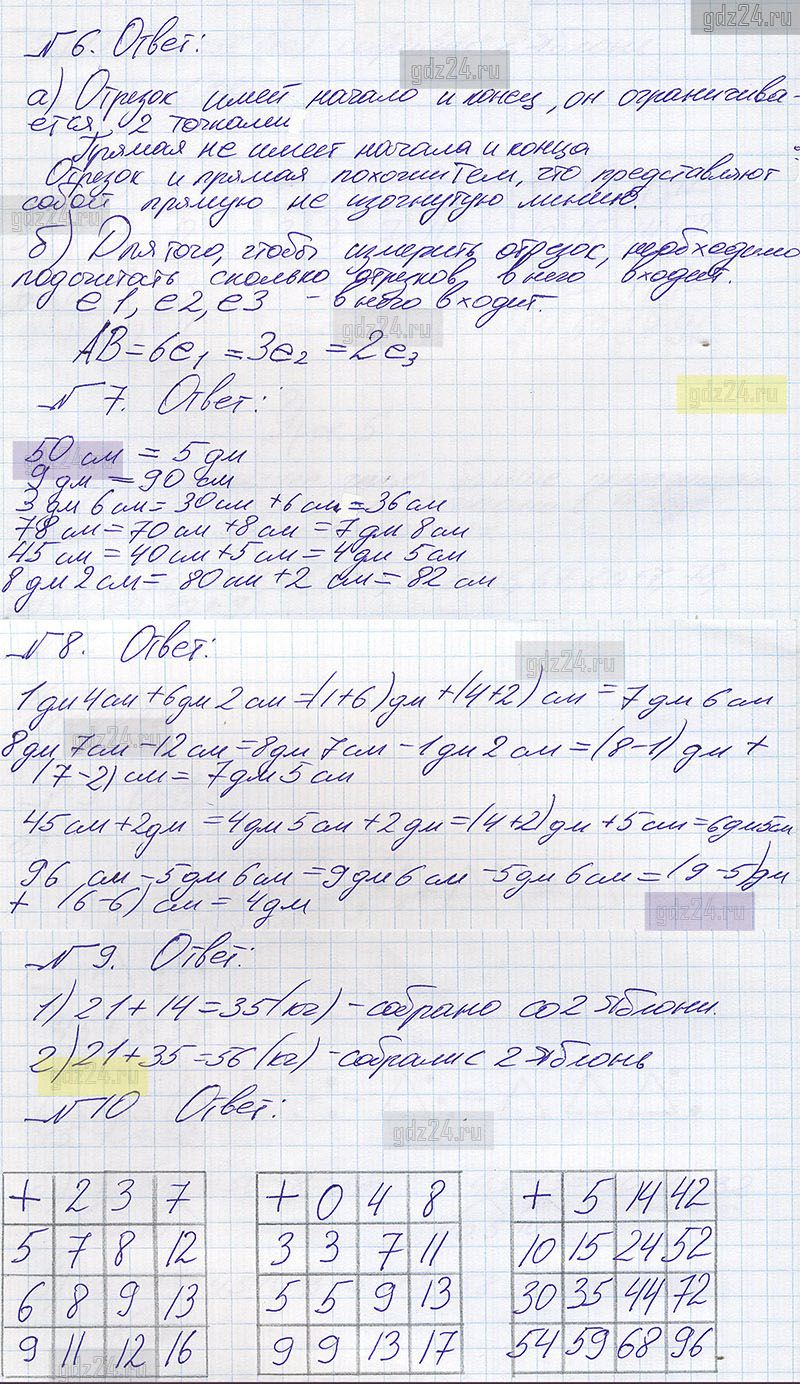 gdz24.ru
№6. Ответ:
gdz24.ru
а) Отрезок имеет начало и конец, он ограничива-
ется 2 точками
Прямая не имеет начала и конца
Отрезок и прямая похожи тем, что представляют
собой прямую не изогнутую линию.
gdz24.ru
б) Для того, чтобы измерить отрезок, необходимо
подсчитать сколько отрезков в него входит.
e1, e2, e3 - в него входит.
gdz24.ru
AB = 6e₁ = 3e₂ = 2e₃
№7. Ответ:
gdz24.ru
50 см = 5 дм
gdz24.ru
9 дм = 90 см
3 дм 6 см = 30 см + 6 см = 36 см
78 см = 70 см + 8 см = 7 дм 8 см
45 см = 40 см + 5 см = 4 дм 5 см
8 дм 2 см = 80 см + 2 см = 82 см
№8. Ответ:
gdz24.ru
1 дм 4 см + 6 дм 2 см = (1+6) дм + (4+2) см = 7 дм 6 см
gdz24.ru
8 дм 7 см - 12 см = 8 дм 7 см - 1 дм 2 см = (8-1) дм +
(7-2) см = 7 дм 5 см
45 см + 2 дм = 4 дм 5 см + 2 дм = (4+2) дм + 5 см = 6 дм 5 см
96 см - 5 дм 6 см = 9 дм 6 см - 5 дм 6 см = (9-5) дм
+ (6-6) см = 4 дм
gdz24.ru
№9. Ответ:
1) 21 + 14 = 35 (кг) - собрано со 2 яблони.
2) 21 + 35 = 56 (кг) - собрали с 2 яблонь
gdz24.ru
№10 Ответ:
gdz24.ru
+ 2 3 7
5 7 8 12
6 8 9 13
9 11 12 16
gdz24.ru
+ 0 4 8
3 3 7 11
5 5 9 13
9 9 13 17
+ 5 14 42
10 15 24 52
30 35 44 72
54 59 68 96